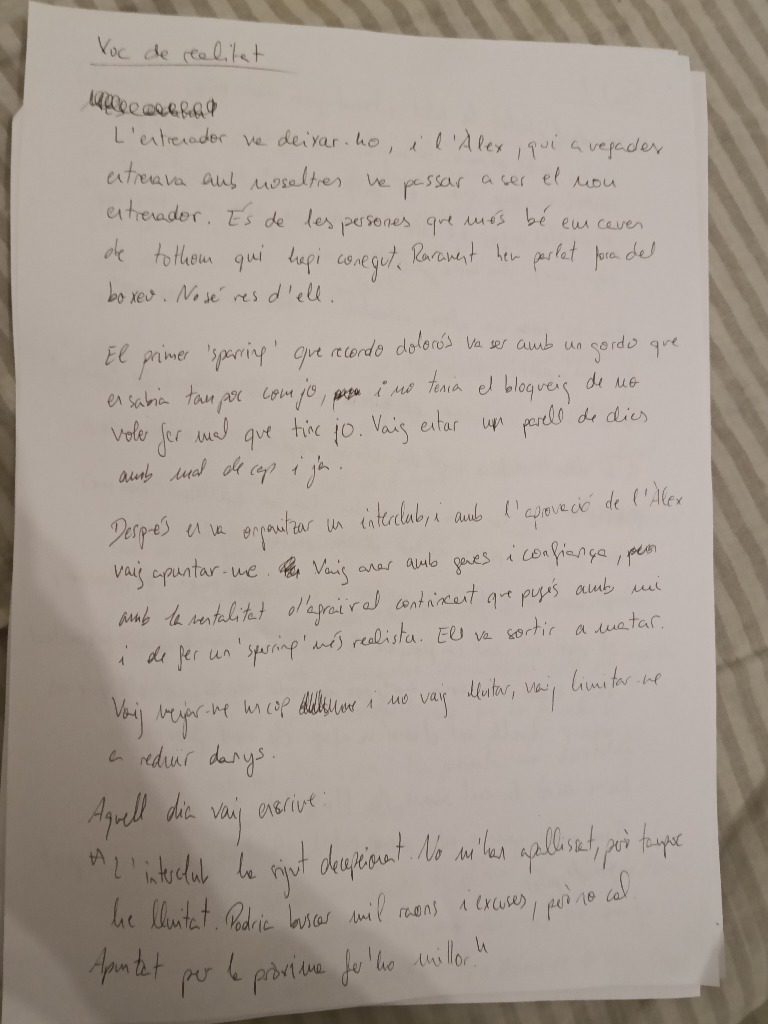 Voc de realitat
L'entrenador va deixar-ho, i l'Àlex, qui a vegades
entrenava amb nosaltres va passar a ser el nou
entrenador. És de les persones que més bé em cauen
de tothom qui hagi conegut. Rarament hem parlat fora del
boxeo. No sé res d'ell.
El primer 'sparring' que recordo dolorós va ser amb un gordo que
en sabia tan poc com jo, i no tenia el bloqueig de no
voler fer mal que tinc jo. Vaig estar un parell de dies
amb mal de cap i ja.
Després es va organitzar un interclub, i amb l'aprovació de l'Àlex
vaig apuntar-me. Vaig anar amb ganes i confiança, però
amb la mentalitat d'agrair al contrincant que pugés amb mi
i de fer un 'sparring' més realista. Ell va sortir a matar.
Vaig menjar-me un cop i no vaig lluitar, vaig limitar-me
a reduir danys.
Aquell dia vaig escriure:
"L'interclub ha sigut decepcionant. No m'han apallissat, però tampoc
he lluitat. Podria buscar mil raons i excuses, però no cal.
Apuntat per la pròxima fer'ho millor."